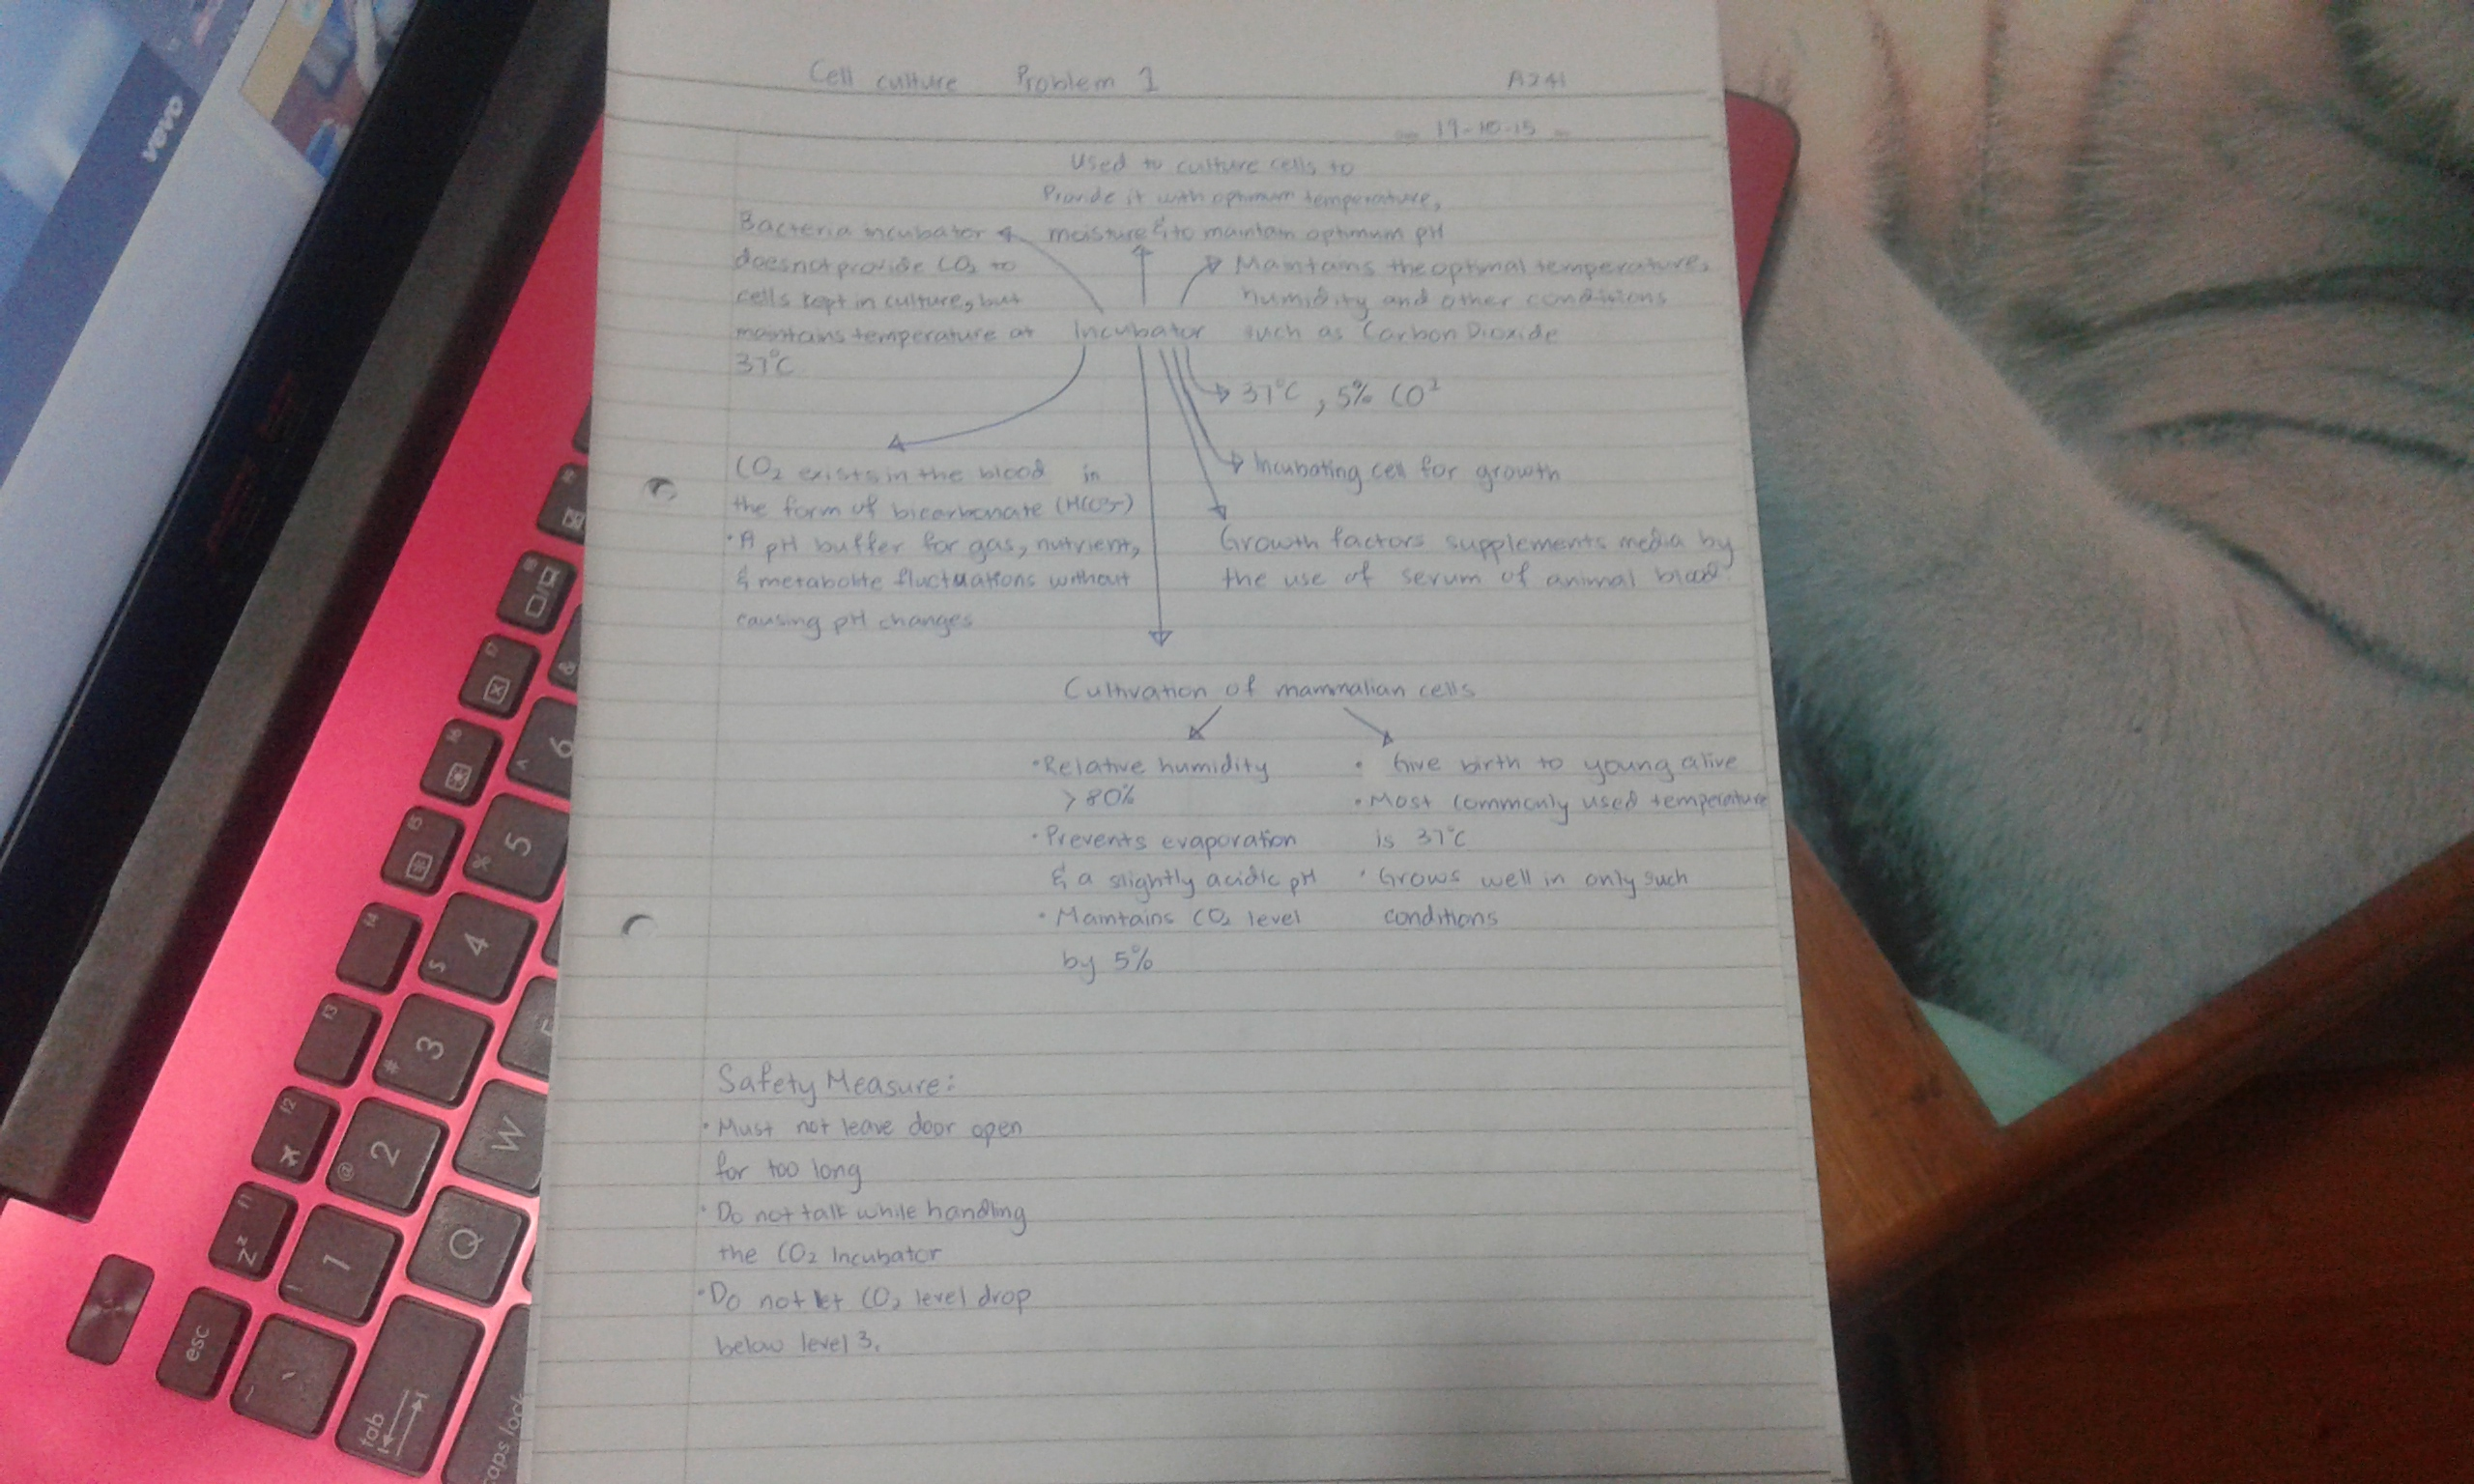 Cell culture Problem 1
A241
19-10-15
Used to culture cells to
Provide it with optimum temperature,
moisture & to maintain optimum pH
Bacteria incubator
does not provide CO2 to
cells kept in culture, but
maintains temperature at
37°C
Incubator
Maintains the optimal temperature,
humidity and other conditions
such as Carbon Dioxide
37°C, 5% CO²
Incubating cell for growth
Growth factors supplements media by
the use of serum of animal blood
CO2 exists in the blood in
the form of bicarbonate (HCO3-)
• A pH buffer for gas, nutrient,
& metabolite fluctuations without
causing pH changes
Cultivation of mammalian cells
• Relative humidity
> 80%
• Prevents evaporation
& a slightly acidic pH
• Maintains CO2 level
by 5%
• Give birth to young alive
• Most commonly used temperature
is 37°C
• Grows well in only such
conditions
Safety Measure:
• Must not leave door open
for too long
• Do not talk while handling
the CO2 Incubator
• Do not let CO2 level drop
below level 3.
vevo
esc
f1
f2
f3
f4
f5
f6
f7
f8
1 !
2 @
3 #
4 $
5 %
6 ^
tab
Q
W
caps lock